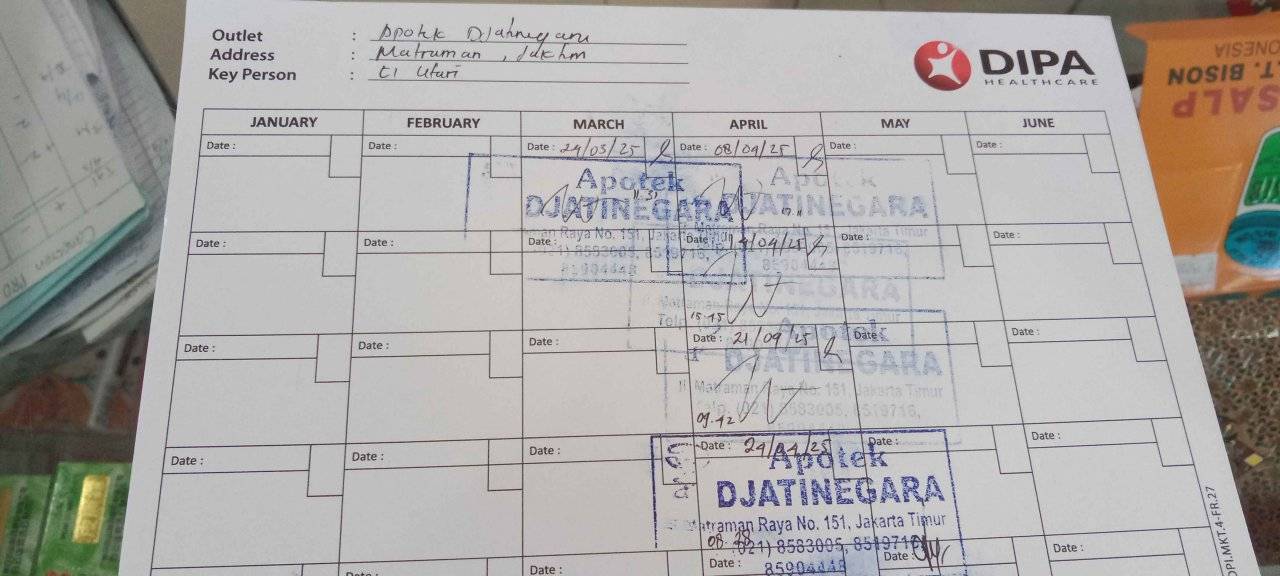 Outlet : Apotek Djatinegara
Address : Matraman, Jaktim
Key Person : CI Utari
DIPA
HEALTHCARE
JANUARY FEBRUARY MARCH APRIL MAY JUNE
Date : Date : Date : 24/03/25 Date : 08/04/25 Date : Date :
Apotek
DJATINEGARA
Raya No. 151, Jakarta
8583005, 8519716,
85904448
Apotek
DJATINEGARA
Raya No. 151, Jakarta Timur
8519716,
85904448
Date : Date : Date : Date : 14/04/25 Date : Date :
DJATINEGARA
15.45
Date : Date : Date : Date : 21/04/25 Date : Date :
Apotek
DJATINEGARA
Jl. Matraman Raya No. 151, Jakarta Timur
Telp. (021) 8583005, 8519716,
09.42
Date : Date : Date : Date : 24/04/25 Date : Date :
Apotek
DJATINEGARA
Matraman Raya No. 151, Jakarta Timur
(021) 8583005, 8519716,
85904448
08.28
Date : Date : Date : Date : Date :
DPI.MKT.4-FR.27
SALP
T. BISON